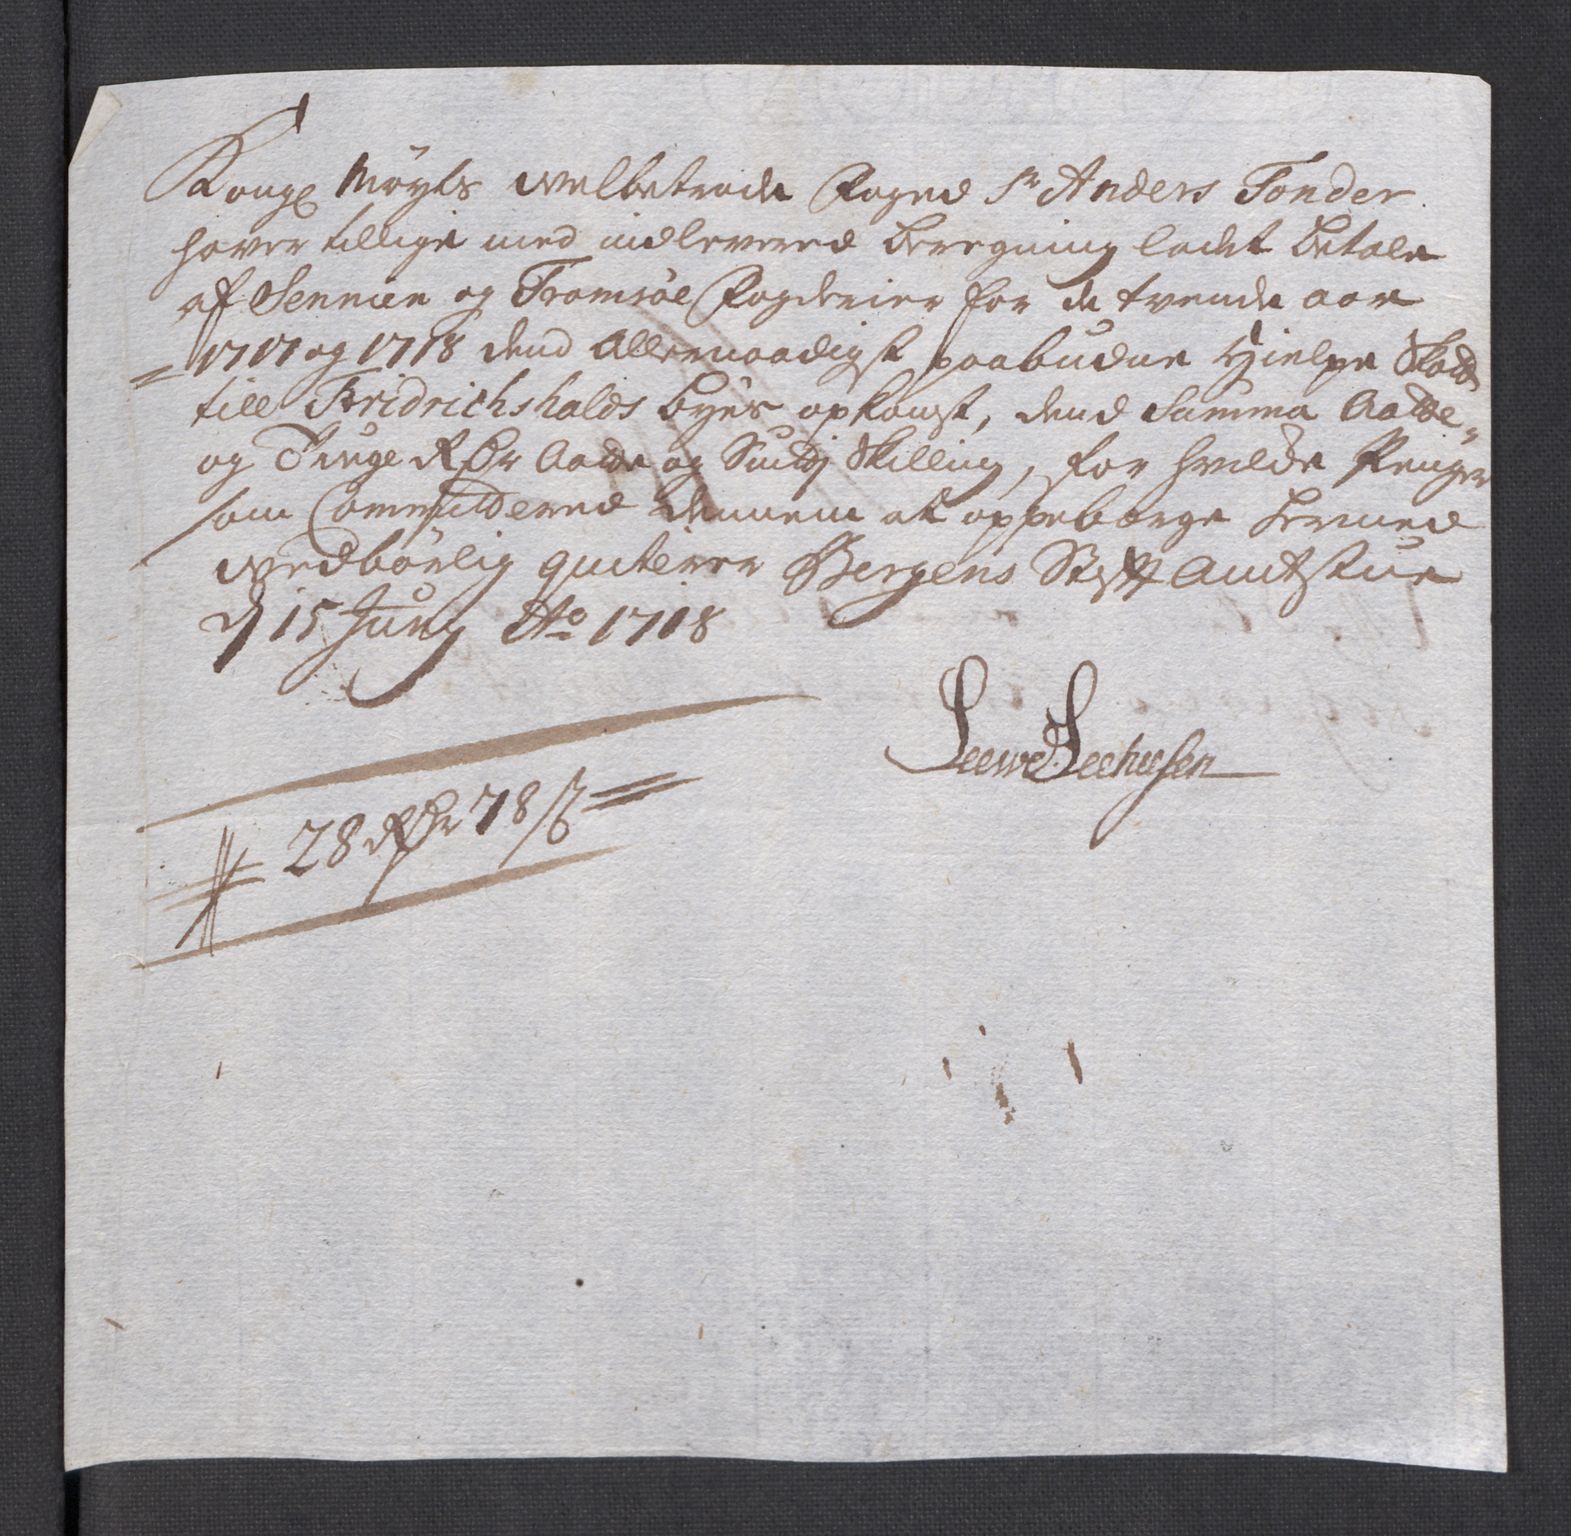 Kongl Mayts welbetrode Foged Sr Anders Tonder
haver tillige med indlevered beregning ladet betale
af Sennien og Tromsöe Fogderier for de tvende aar
1717 og 1718 dend allernaadigst paabudne Hielpe Skatt
till Fridrichshalds byes opkomst, dend Summa Aatte
og Tiuge Rdr Aatte og Siutj Skilling, for hvilde Penger
som Committered dennem at oppebærge hermed
wedbörlig quiterer Bergens Stifft Amtstue
d 15 Juny Ao 1718
Leewe Seehusen
28 Rdr 78 ß